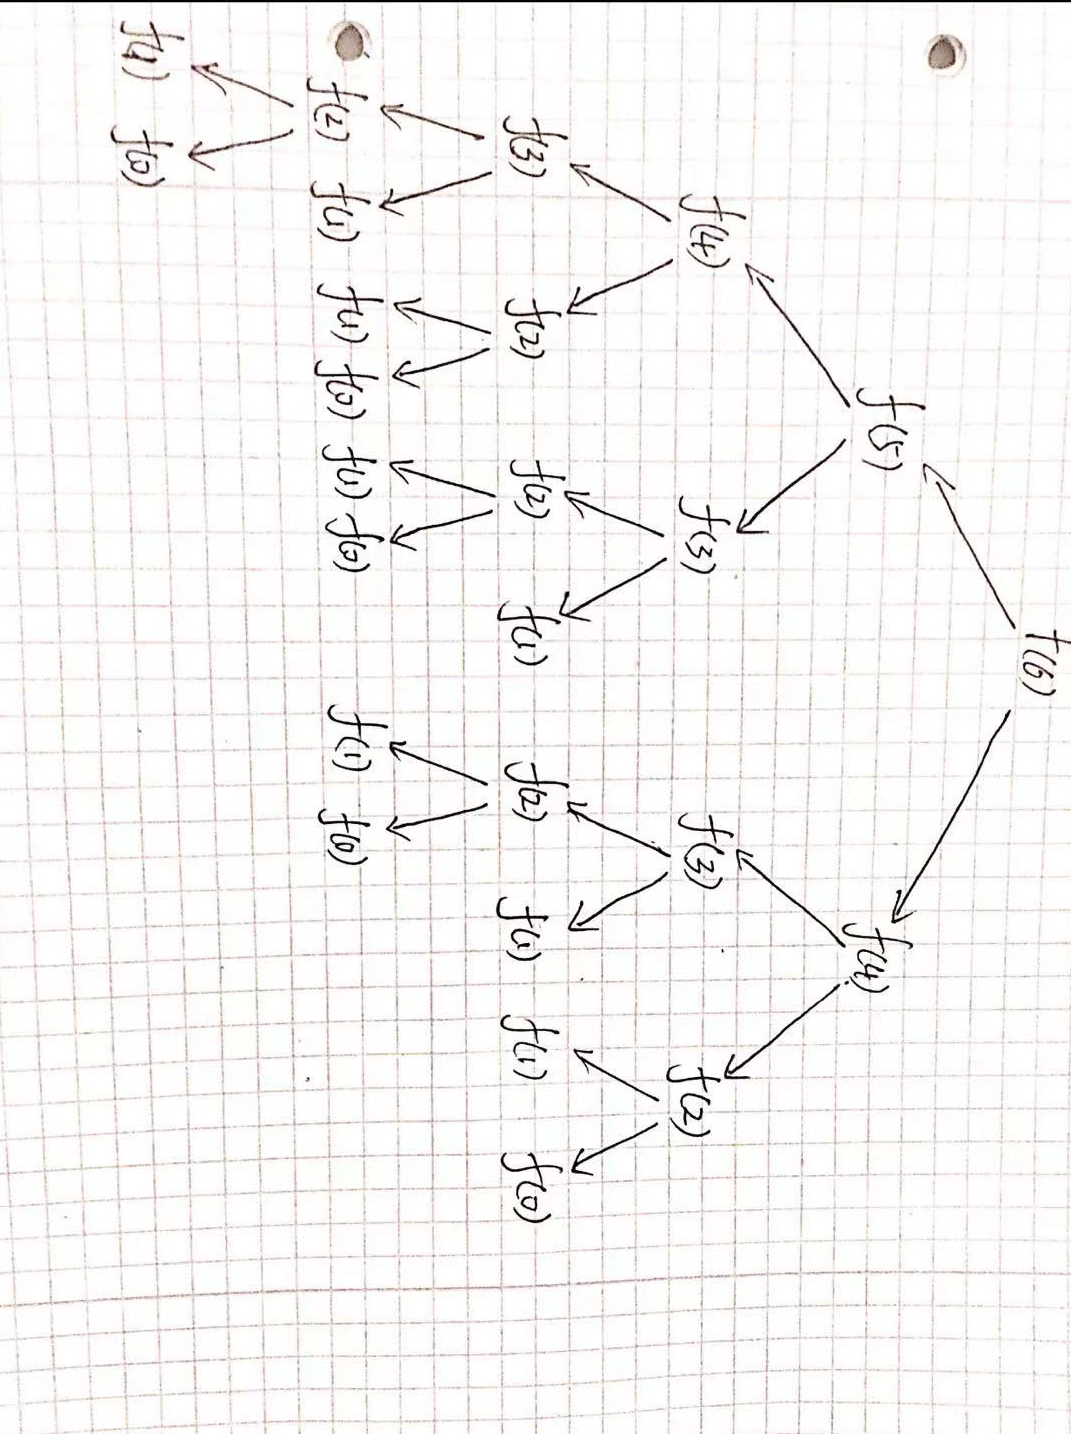 f(6)
f(5) f(4)
f(4) f(3) f(3) f(2)
f(3) f(2) f(2) f(1) f(2) f(1) f(1) f(0)
f(2) f(1) f(1) f(0) f(1) f(0) f(1) f(0)
f(1) f(0)